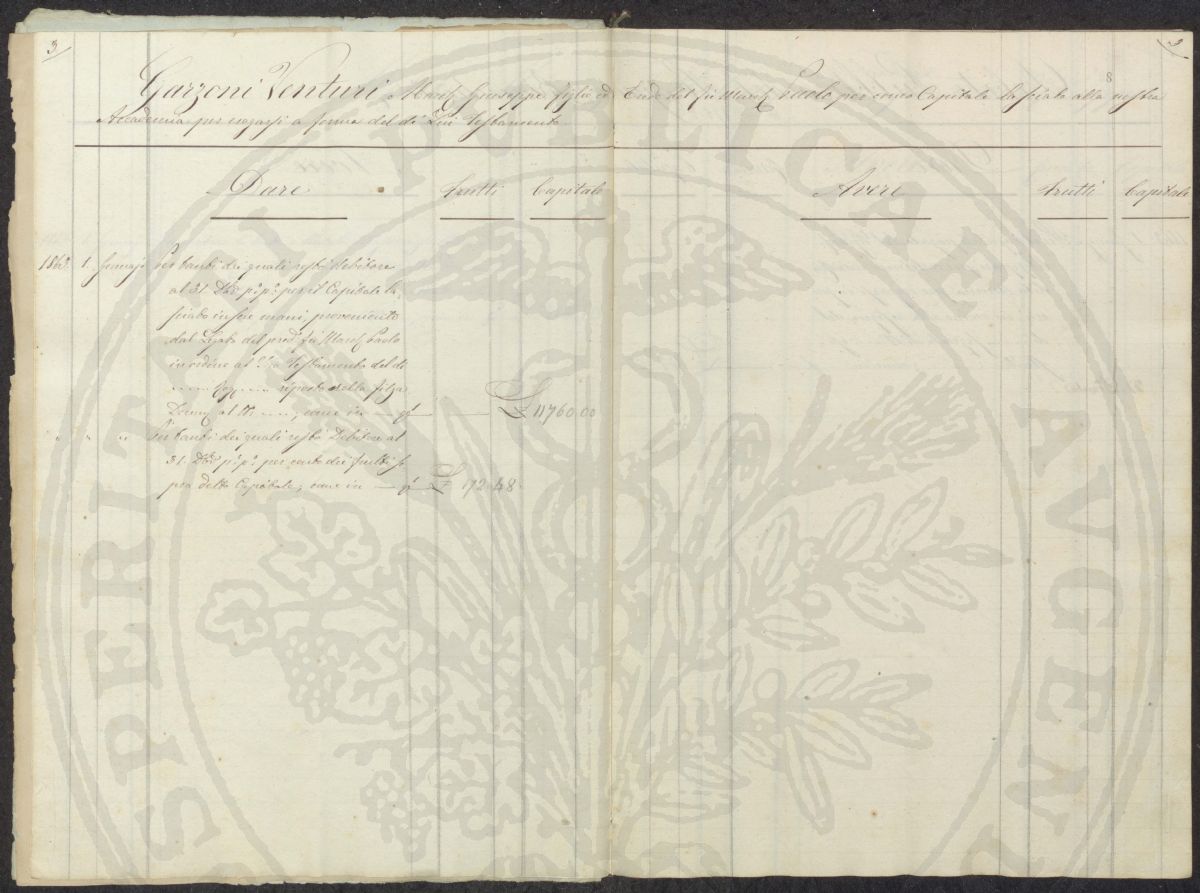 3 3
8
Garzoni Venturi March. Giuseppe figlio ed Erede del fù March. Paolo per conto Capitale lasciato alla nostra
Accademia per erogarsi a forma del di Lui Testamento
Dare Frutti Capitale Avere Frutti Capitale
1863 1. Gennajo Per tanti dei quali restò debitore
al 31 Dbre p.o p.o per il Capitale la
sciato in sue mani proveniente
dal Legato del pred. fù March. Paolo
in ordine al Testamento del dì
riposto nella filza
al N. ; come in L 11760.00
" " " Per tanti dei quali restò Debitore al
31. Dbre p.o p.o per conto dei frutti so
pra detto Capitale; come in L 172.48
PROSPERITATI PUBLICAE AVGEN